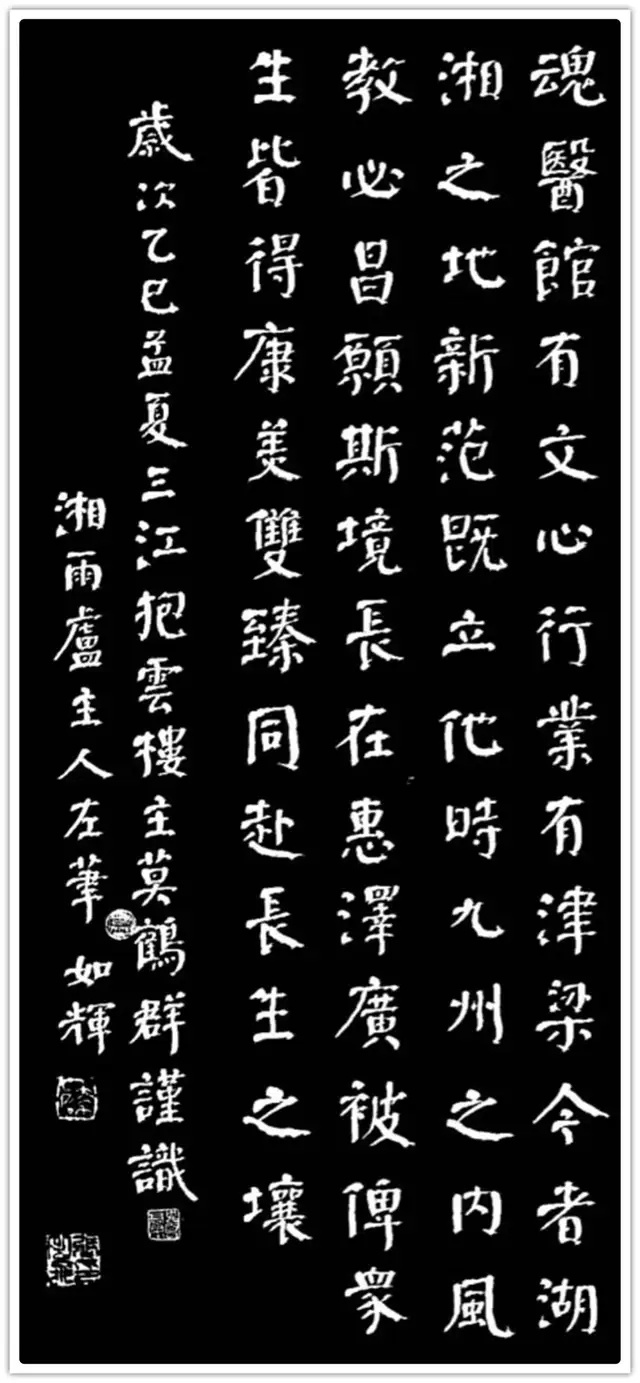 魂醫館有文心行業有津梁今者湖
湘之地新范既立他時九州之内風
教必昌願斯境長在惠澤廣被俾衆
生皆得康美雙臻同赴長生之壤
歲次乙巳孟夏三江抱雲樓主莫鶴群謹識
湘雨盧主人左筆如輝